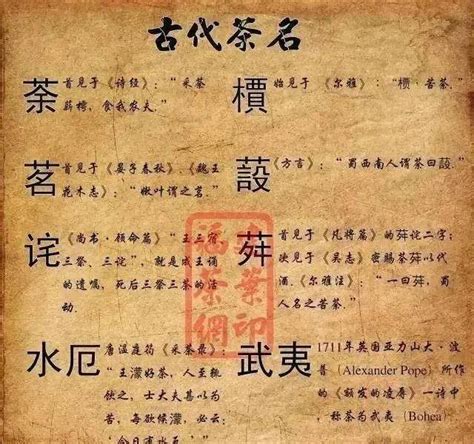 古代茶名
荼
首见于《诗经》：“采荼
薪樗，食我农夫。”
檟
始见于《尔雅》：“檟，苦荼。”
茗
首见于《晏子春秋》、《魏王
花木志》：“嫩叶谓之茗。”
蔎
《方言》：“蜀西南人谓茶曰蔎。”
诧
《尚书·顾命篇》“王三宿、
三祭、三诧”，就是成王诵
的遗嘱，死后三祭三茶的活
动.
荈
首见于《凡将篇》的荈诧二字；
次见于《吴志》密赐荈以代
酒.《尔雅注》：“一曰荈，蜀
人名之苦荼.”
水厄
唐温庭筠《采茶录》：
“王濛好茶，人至辄
饮之，士大夫甚以为
苦，每欲候濛，必云：
今日有水厄
武夷
1711年英国亚力山大·波
普（Alexander Pope）所作
的《额发的凌辱》一诗中
，称茶为武夷（Bohea）
茶業印
網